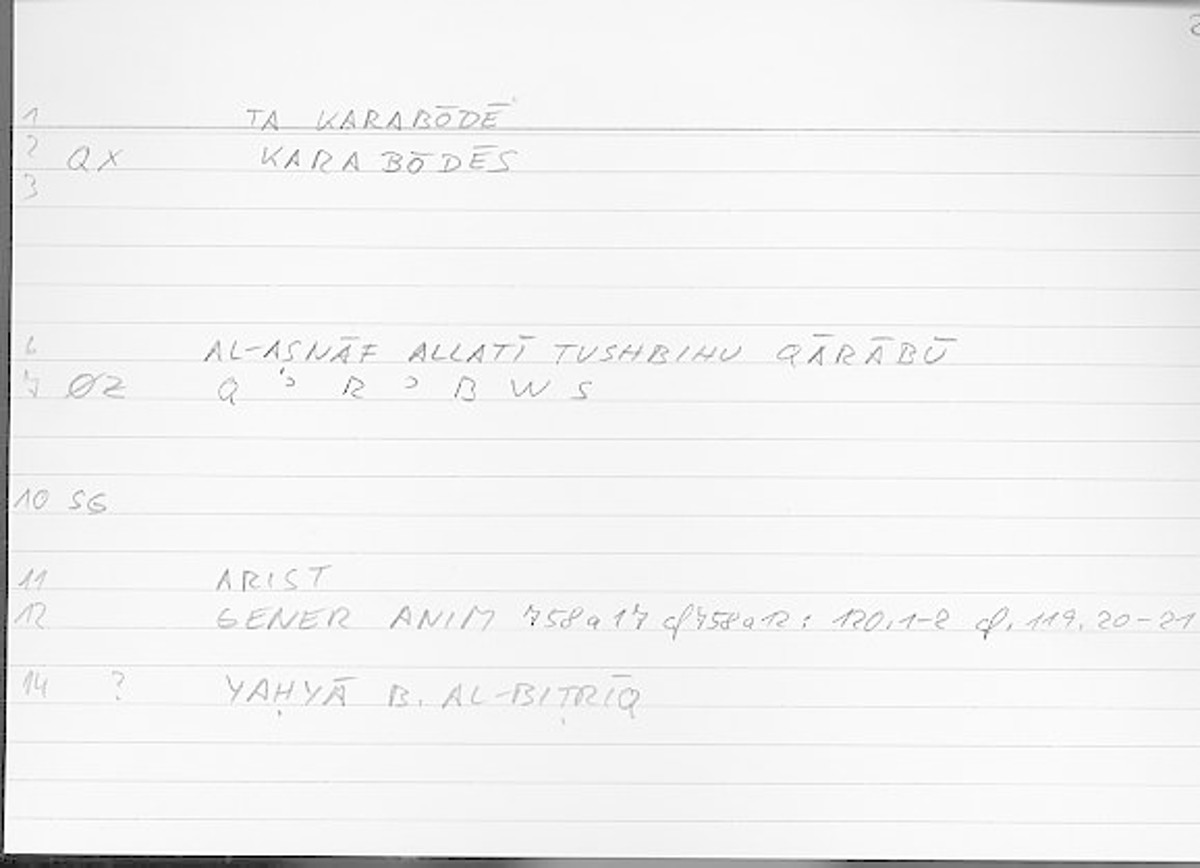 1 TA KARABŌDĒ
2 QX KARABŌDĒS
3
6 AL-AṢNĀF ALLATĪ TUSHBIHU QĀRĀBŪ
7 ØZ Q ʾ R ʾ B W S
10 SG
11 ARIST
12 GENER ANIM 758a17 cf 758a12: 120.1-2 cf. 119.20-21
14 ? YAḤYĀ B. AL-BIṬRĪQ